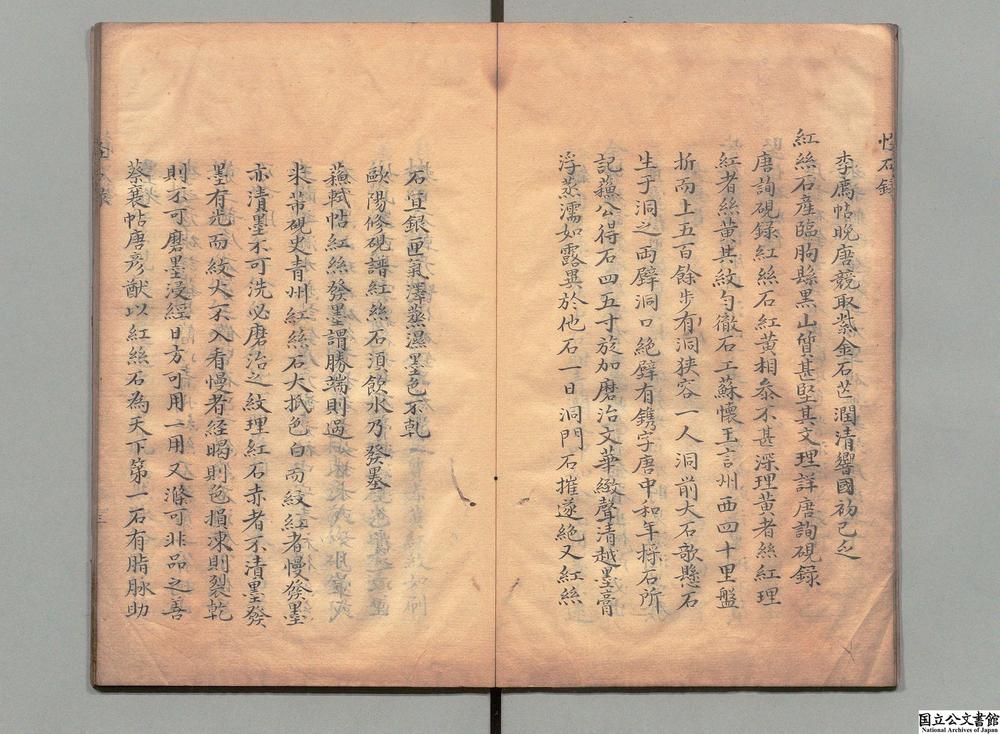 怪石録
李廌帖晚唐競取紫金石芒潤清響國初已乏
紅絲石產臨朐縣黑山質甚堅其文理詳唐詢硯錄
唐詢硯録紅絲石紅黃相叅不甚深理黃者絲紅理
紅者絲黃其紋勻徹石工蘇懷玉言州西四十里盤
折而上五百餘步有洞狹容一人洞前大石欹懸石
生于洞之両壁洞口絶壁有鐫字唐中和年採石所
記蘓公得石四五寸旋加磨治文華緻聲清越墨膏
浮蒸濡如露異於他石一日洞門石摧遂絶又紅絲
石宜銀匣氣澤蒸濕墨色不乾
歐陽修硯譜紅絲石須飲水乃發墨
蘓軾帖紅絲發墨謂勝端則過
米芾硯史青州紅絲石大抵色白而紋紅者慢發墨
亦漬墨不可洗必磨治之紋理紅石赤者不漬墨發
墨有光而紋大不入看慢者経暍則色損凍則裂乾
則不可磨墨浸經日方可用一用又滌可非品之善
蔡襄帖唐彦猷以紅絲石為天下第一石有脂脉助
国立公文書館
National Archives of Japan